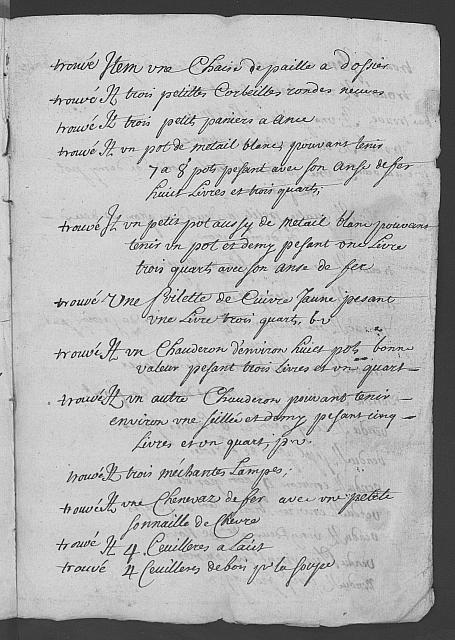 trouvé Item une Chaise de paille a dossier
trouvé It trois petittes Corbeilles rondes neuves
trouvé It trois petits paniers a ance
trouvé It un pot de metail blanc pouvant tenir
7 a 8 pots pesant avec son anse de fer
huict Livres et trois quarts,
trouvé It un petit pot aussy de metail blanc pouvant
tenir un pot et demy pesant une Livre
trois quarts avec son anse de fer
trouvé Une de Cuivre Jaune pesant
une Livre trois quarts,
trouvé It un Chauderon d'environ huict pots bonne
valeur pesant trois Livres et un quart
trouvé It un autre Chauderon pouvant tenir
environ une seillée et demy pesant cinq
Livres et un quart,
trouvé It trois méchantes Lampes,
trouvé It une de fer avec une petite
sonnaille de Chevre
trouvé It 4 Ceuilleres a Laict
trouvé 4 Ceuilleres de bois pr la soupe